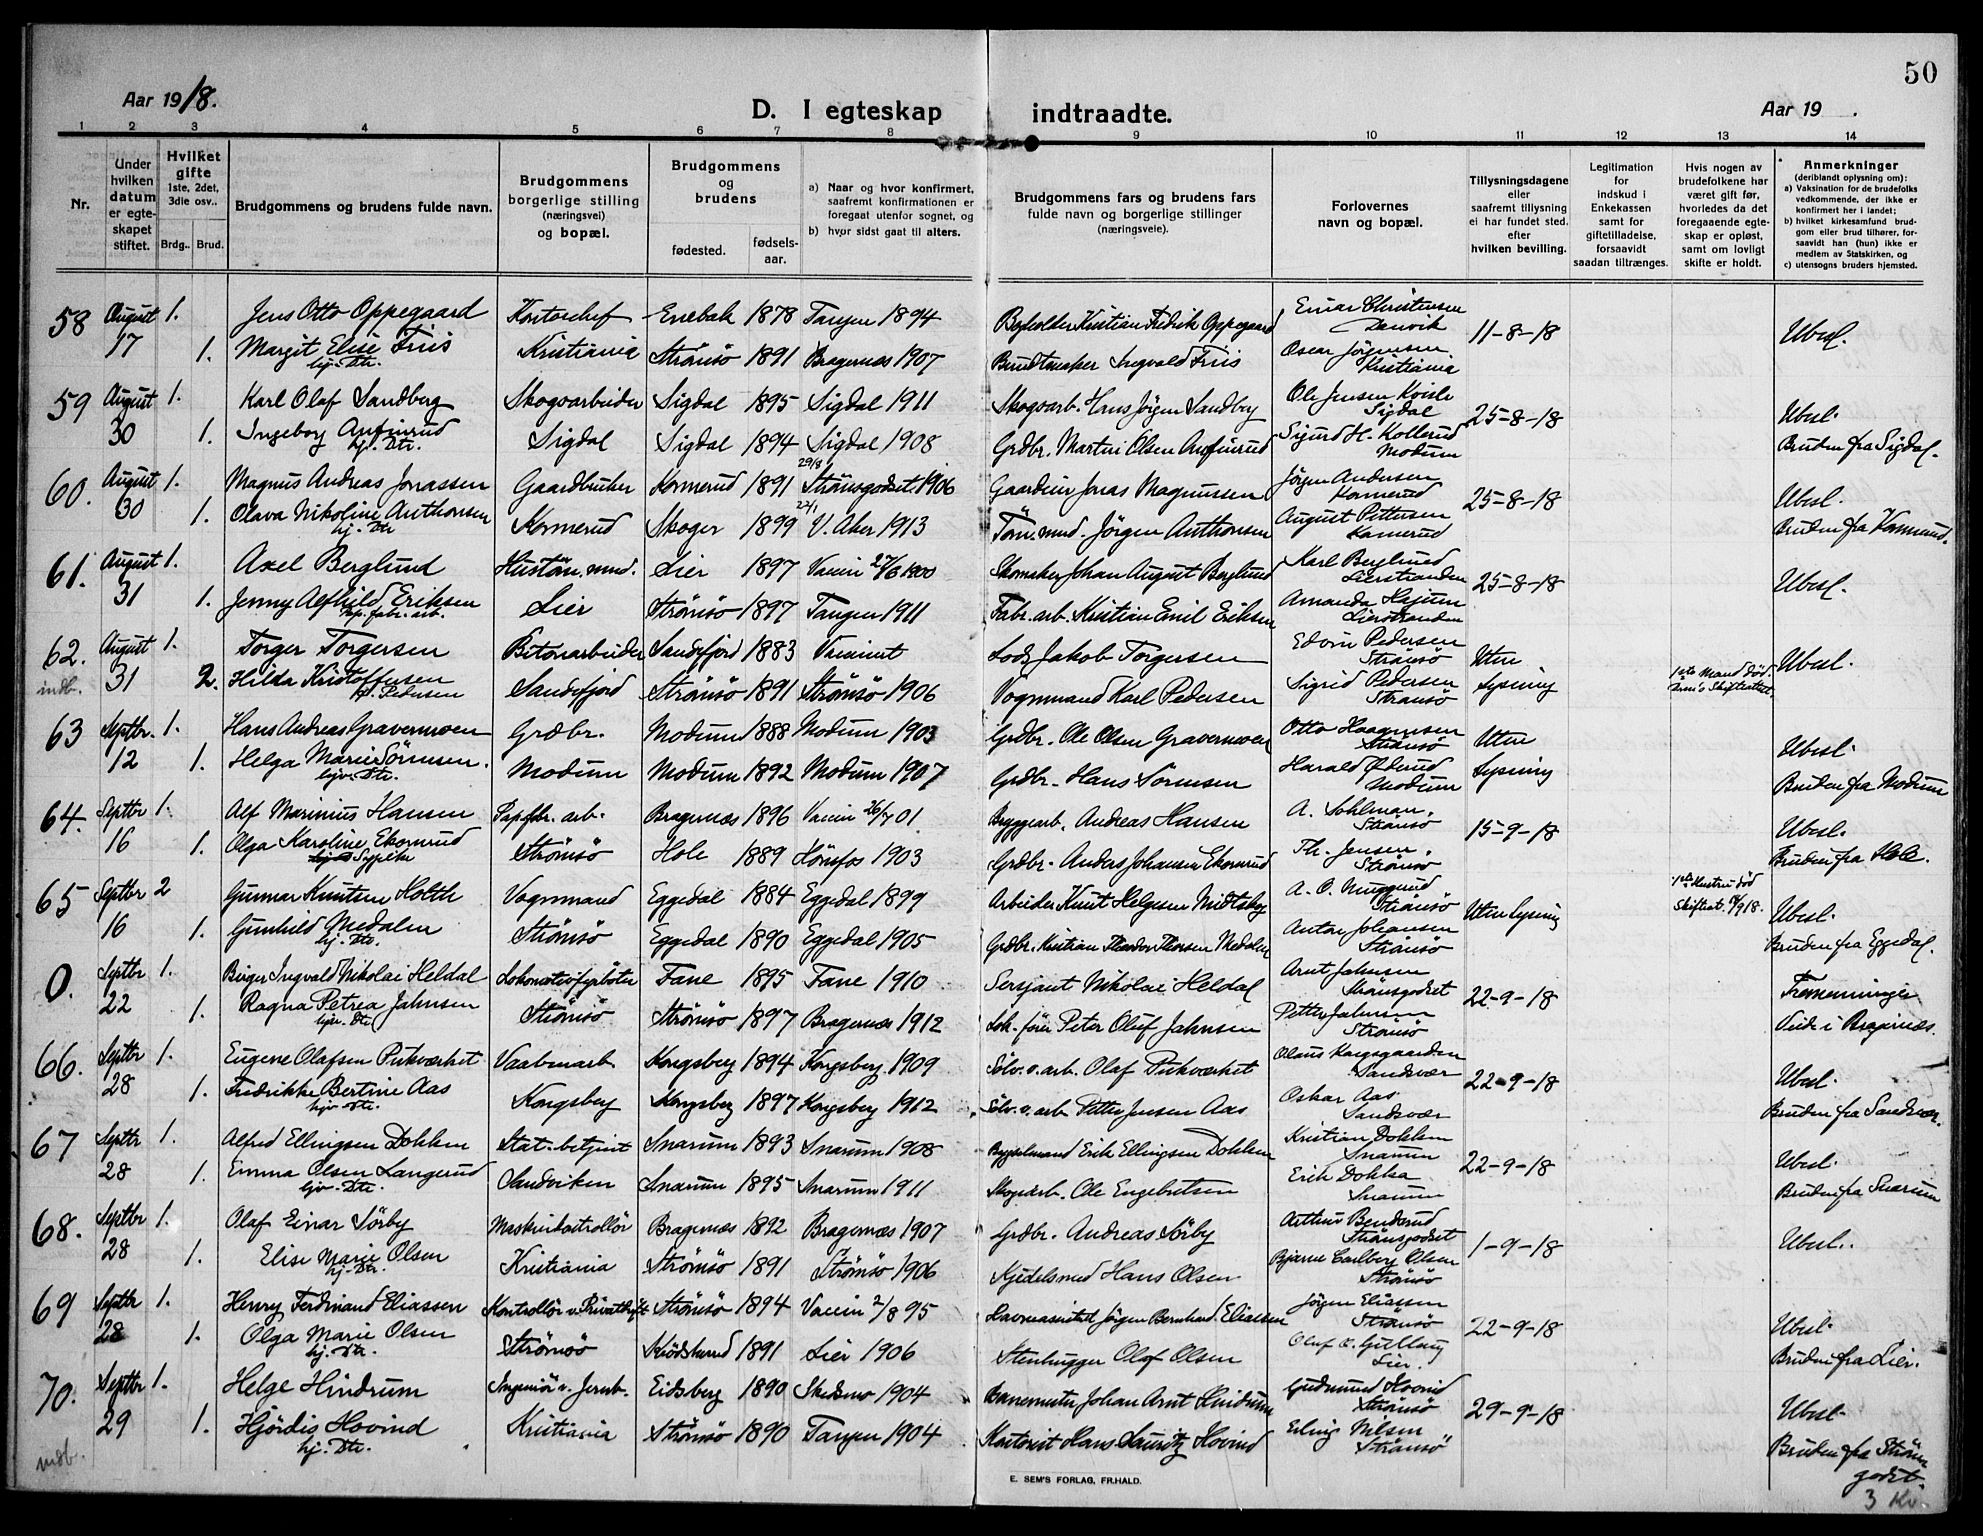 50
Aar 1918.
D. I egteskap indtraadte.
Aar 19 .
1 2 3 4 5 6 7 8 9 10 11 12 13 14
Nr.
Under hvilken datum er egteskapet stiftet.
Hvilket gifte 1ste, 2det, 3die osv..
Brdg.. Brud.
Brudgommens og brudens fulde navn.
Brudgommens borgerlige stilling (næringsvei) og bopæl.
Brudgommens og brudens
fødested. fødsels-aar.
a) Naar og hvor konfirmert, saafremt konfirmationen er foregaat utenfor sognet, og
b) hvor sidst gaat til alters.
Brudgommens fars og brudens fars fulde navn og borgerlige stillinger (næringsveie).
Forlovernes navn og bopæl.
Tillysningsdagene eller saafremt tillysning ei har fundet sted. efter hvilken bevilling.
Legitimation for indskud i Enkekassen samt for giftetilladelse, forsaavidt saadan tiltrænges.
Hvis nogen av brudefolkene har været gift før, hvorledes da det foregaaende egteskap er opløst, samt om lovligt skifte er holdt.
Anmerkninger (deriblandt oplysning om):
a) Vaksination for de brudefolks vedkommende, der ikke er konfirmert her i landet;
b) hvilket kirkesamfund brudgom eller brud tilhører, forsaavidt han (hun) ikke er medlem av Statskirken, og
c) utensogns bruders hjemsted.
58 August 1. Jens Otto Oppegaard Kontorchef Enebak 1878 Tangen 1894 Bogholder Kristian Fredrik Oppegaard Einar Christensen Danvik 11-8-18 Ubesl.
17 1. Margit Elise Friis hj. Dtr. Kristiania Strömsö 1891 Bragernæs 1907 Bundtmaker Ingvald Friis Oscar Jörgensen Kristiania
59 August 1. Karl Olaf Sandberg Skogsarbeider Sigdal 1895 Sigdal 1911 Skogsarb. Hans Jörgen Sandberg Ole Jensen Kvisle Sigdal 25-8-18 Ubesl.
30 1. Ingeborg Anfinrud hj. Dtr. Sigdal Sigdal 1894 Sigdal 1908 Grdbr. Martin Olsen Anfinrud Sigurd H. Kollerud Modum Bruden fra Sigdal.
60. August 1. Magnus Andreas Jonassen Gaardbruker Konnerud 1891 29/8 Strömsgodset 1906 Gaardeier Jonas Magnussen Jörgen Andersen Konnerud 25-8-18 Ubesl.
30 1. Olava Nikoline Anthonsen hj. Dtr Konnerud Skoger 1899 V. Aker 1913 Töm.mnd. Jörgen Anthonsen August Pettersen Konnerud Bruden fra Konnerud.
61. August 1. Axel Berglund Hustöm.mnd. Lier 1897 Vaccin Skomaker Johan August Berglund Karl Berglund Lierstranden 25-8-18 Ubesl.
31 1. Jenny Alfhild Eriksen fabr. arb. Lier Strömsö 1897 Tangen 1911 Fabr. arb. Kristian Emil Eriksen Amanda Lierstranden
62. August 1. Torger Torgersen Betonarbeider Sandefjord 1883 Lods Jakob Torgersen Edvin Pedersen Strömsö Uten Ubesl.
indb. 31 2. Hilda Kristoffersen f. Pedersen Sandefjord Strömsö 1891 Strömsö 1906 Vognmand Karl Pedersen Sigrid Pedersen Strömsö Lysning 1ste Mand död.
63 Septbr. 1. Hans Andreas Gravermoen Grdbr. Modum 1888 Modum 1903 Grdbr. Ole Olsen Gravermoen Otto Haagensen Strömsö Uten Ubesl.
12 1. Helga Marie Sörensen. hjv. Dtr. Modum Modum 1892 Modum 1907 Grdbr. Hans Sörensen Harald Öderud Modum Lysning Bruden fra Modum
64. Septbr 1. Alf Marinius Hansen Papfbr. arb. Bragernæs 1896 Vaccin 26/7 01 Bryggearb. Andreas Hansen A. Sohlman, Strömsö 15-9-18 Ubesl.
16 1. Olga Karoline Ekornrud Sypike Strömsö Hole 1889 Hönefos 1903 Grdbr. Anders Johansen Ekornrud Th. Jensen, Strömsö Bruden fra Hole.
65 Septbr 2 Gunnar Knutsen Holth Vognmand Eggedal 1884 Eggedal 1899 Arbeider Knut Helgesen Midtskog A. O. Strömsö Uten Lysning 1ste Hustru död Ubesl.
16 1. Gunhild Medalen hj. Dtr. Strömsö Eggedal 1890 Eggedal 1905 Grdbr. Kristian Theodor Thorsen Medalen Anton Johansen Strömsö Bruden fra Eggedal.
0. Septbr 1. Birger Ingvald Nikolai Heldal Lokomotivfyrböter Fane 1895 Fane 1910 Sersjant Nikolai Heldal Arnt Jahnsen Strömsgodset 22-9-18 Fremmeninger
22 1. Ragna Petrea Jahnsen hjv. Dtr Strömsö Strömsö 1897 Bragernæs 1912 Lok. förer Peter Oluf Jahnsen Petter Jahnsen Strömsö Viede i Bragernæs.
66. Septbr 1. Eugene Olafsen Pukværket Vaabenarb. Kongsberg 1894 Kongsberg 1909 Sölv.v.arb. Olaf Pukværket Olaus Kongsgaarden Sandsvær 22-9-18 Ubesl.
28 1. Fredrikke Bertine Aas hjv. Dtr. Kongsberg Kongsberg 1897 Kongsberg 1912 Sölv.v.arb Petter Jensen Aas Oskar Aas Sandsvær Bruden fra Sandsvær.
67 Septbr 1. Alfred Ellingsen Dokken Stat. betjent Snarum 1893 Snarum 1908 Erik Ellingsen Dokken Kristian Dokken Snarum 22-9-18 Ubesl.
28 1. Emma Olsen Langerud hjv. Dtr. Sandviken Snarum 1895 Snarum 1911 Skogsarb. Ole Engebretsen Erik Dokka Snarum Bruden fra Snarum
68. Septbr 1. Olaf Einar Sörby Maskinkontrollör Bragernæs 1892 Bragernæs 1907 Grdbr. Andreas Sörby Arthur Benderud Strömsgodset 1-9-18 Ubesl.
28 1. Elise Marie Olsen hj. Dtr. Kristiania Strömsö 1891 Strömsö 1906 Kjedelsmed Hans Olsen Bjarne Carlberg Olsen Strömsö
69 Septbr 1. Henry Ferdinand Eliassen Kontrollör v. Privatdrift Strömsö 1894 Vaccin 2/8 95 Havneassistent Jörgen Bernhard Eliassen Jörgen Eliassen Strömsö 22-9-18 Ubesl.
28 1. Olga Marie Olsen hj. Dtr. Strömsö Krödsherred 1891 Lier 1906 Stenhugger Olaf Olsen Olaf O. Gullaug Lier. Bruden fra Lier.
70. Septbr 1. Helge Hindrum Ingeniör v. Jernb. Eidsberg 1890 Skedsmo 1904 Banemester Johan Arnt Hindrum Gudmund Hovind Strömsö 29-9-18 Ubesl.
29 1. Hjördis Hovind hj. Dtr. Kristiania Strömsö 1890 Tangen 1904 Kontorist Hans Lauritz Hovind Erling Nilsen Strömsö Bruden fra Ströms godset.
indb.
3 Kv.
E. SEM'S FORLAG, FR.HALD.